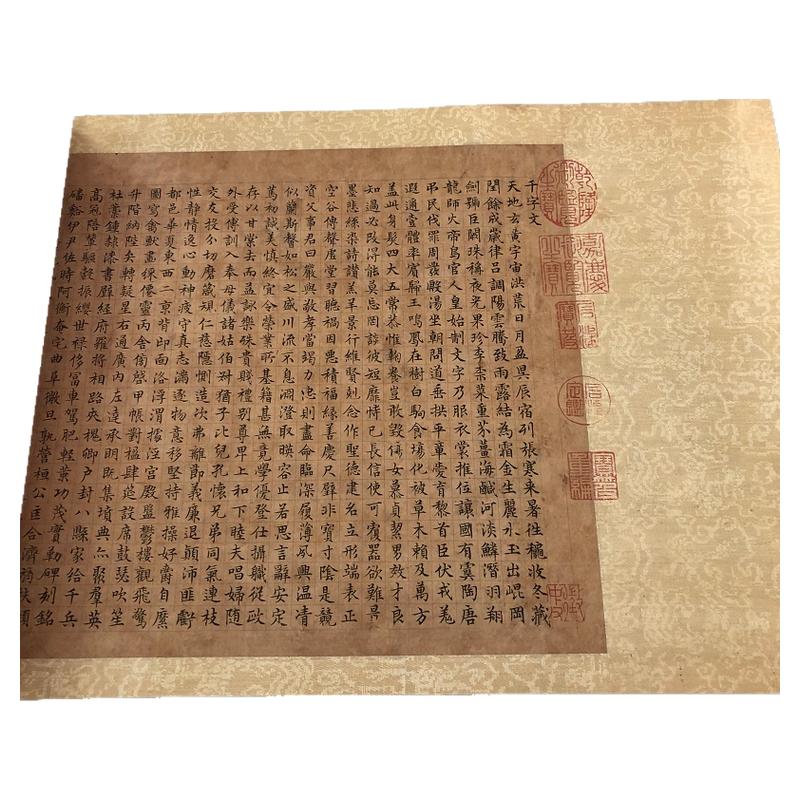 千字文
天地玄黃宇宙洪荒日月盈昃辰宿列張寒来暑徃穐收冬藏
閏餘成歲律呂調陽雲騰致雨露結為霜金生麗水玉出崐岡
劍號巨闕珠稱夜光果珍李柰菜重芥薑海鹹河淡鱗潛羽翔
龍師火帝鳥官人皇始制文字乃服衣裳推位讓國有虞陶唐
弔民伐罪周發殷湯坐朝問道垂拱平章愛育黎首臣伏戎羌
遐邇壹體率賓歸王鳴鳳在樹白駒食場化被草木賴及萬方
盖此身髮四大五常恭惟鞠養豈敢毀傷女慕貞絜男效才良
知過必改得能莫忘罔談彼短靡恃己長信使可覆器欲難量
墨悲絲染詩讚羔羊景行維賢剋念作聖德建名立形端表正
空谷傳聲虛堂習聽禍因惡積福緣善慶尺璧非寶寸陰是競
資父事君曰嚴與敬孝當竭力忠則盡命臨深履薄夙興溫凊
似蘭斯馨如松之盛川流不息淵澄取暎容止若思言辭安定
篤初誠美慎終宜令榮業所基籍甚無竟學優登仕攝職從政
存以甘棠去而益詠樂殊貴賤禮別尊卑上和下睦夫唱婦隨
外受傅訓入奉母儀諸姑伯叔猶子比兒孔懷兄弟同氣連枝
交友投分切磨箴規仁慈隱惻造次弗離節義廉退顛沛匪虧
性靜情逸心動神疲守真志滿逐物意移堅持雅操好爵自縻
都邑華夏東西二京背邙面洛浮渭據涇宮殿盤鬱樓觀飛驚
圖寫禽獸畫綵僊靈丙舍傍啓甲帳對楹肆筵設席鼓瑟吹笙
升階納陛弁轉疑星右通廣內左達承明既集墳典亦聚羣英
杜藁鍾隸漆書壁經府羅將相路俠槐卿戶封八縣家給千兵
高冠陪輦驅轂振纓世祿侈富車駕肥輕策功茂實勒碑刻銘
磻谿伊尹佐時阿衡奄宅曲阜微旦孰營桓公匡合濟弱扶傾